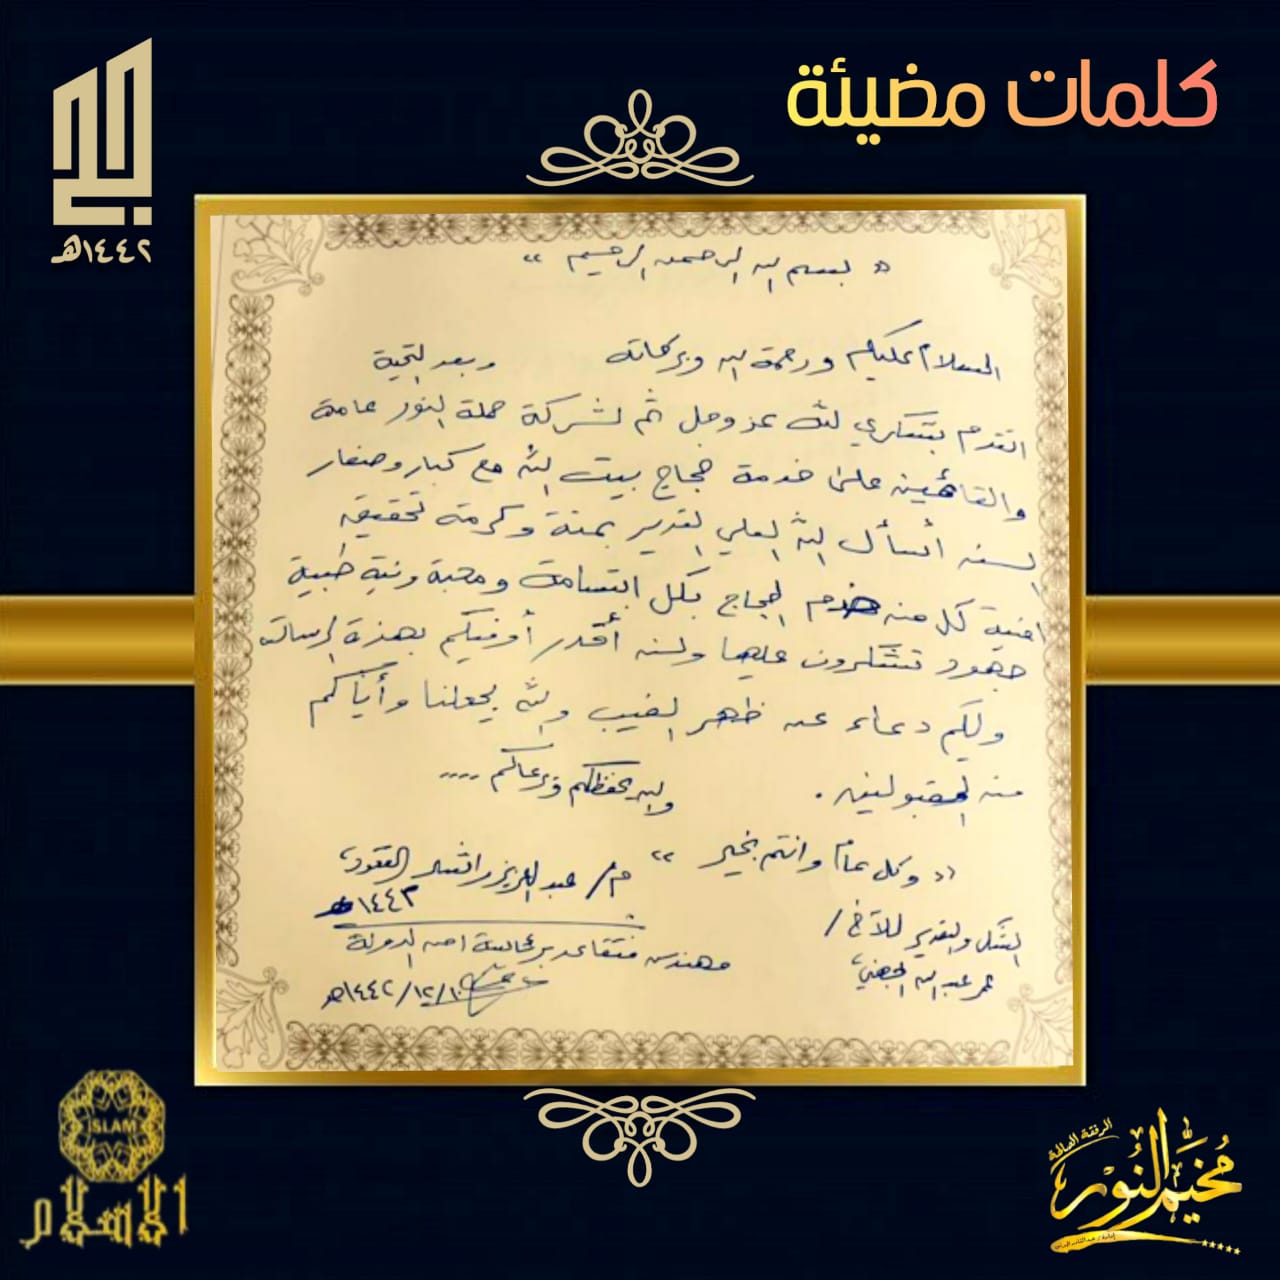 كلمات مضيئة
١٤٤٢هـ
« بسم الله الرحمن الرحيم »
السلام عليكم ورحمة الله وبركاته وبعد التحية
اتقدم بشكري لله عز وجل ثم لشركة حملة النور عامة
والقائمين على خدمة حجاج بيت الله مع كبار وصغار
السن أسأل الله العلي القدير بمنة وكرمة تحقيق
امنية كل من خدم الحجاج بكل ابتسامة ومحبة ونية طيبة
جهود تشكرون عليها ولن أقدر أوفيكم بهذة الرساله
ولكم دعاء عن ظهر الغيب والله يجعلنا وأياكم
من المقبولين . والله يحفظكم ويرعاكم ....
« وكل عام وانتم بخير »
م/ عبد العزيز راشد
١٤٤٢هـ
الشكر والتقدير للآخ /
عمر عبد الله الجهني
مهندس متقاعد امن الدولة
١٤٤٢/١٢/١٠هـ
ISLAM
الاسلام
الرفقة الصالحة
مخيم النور